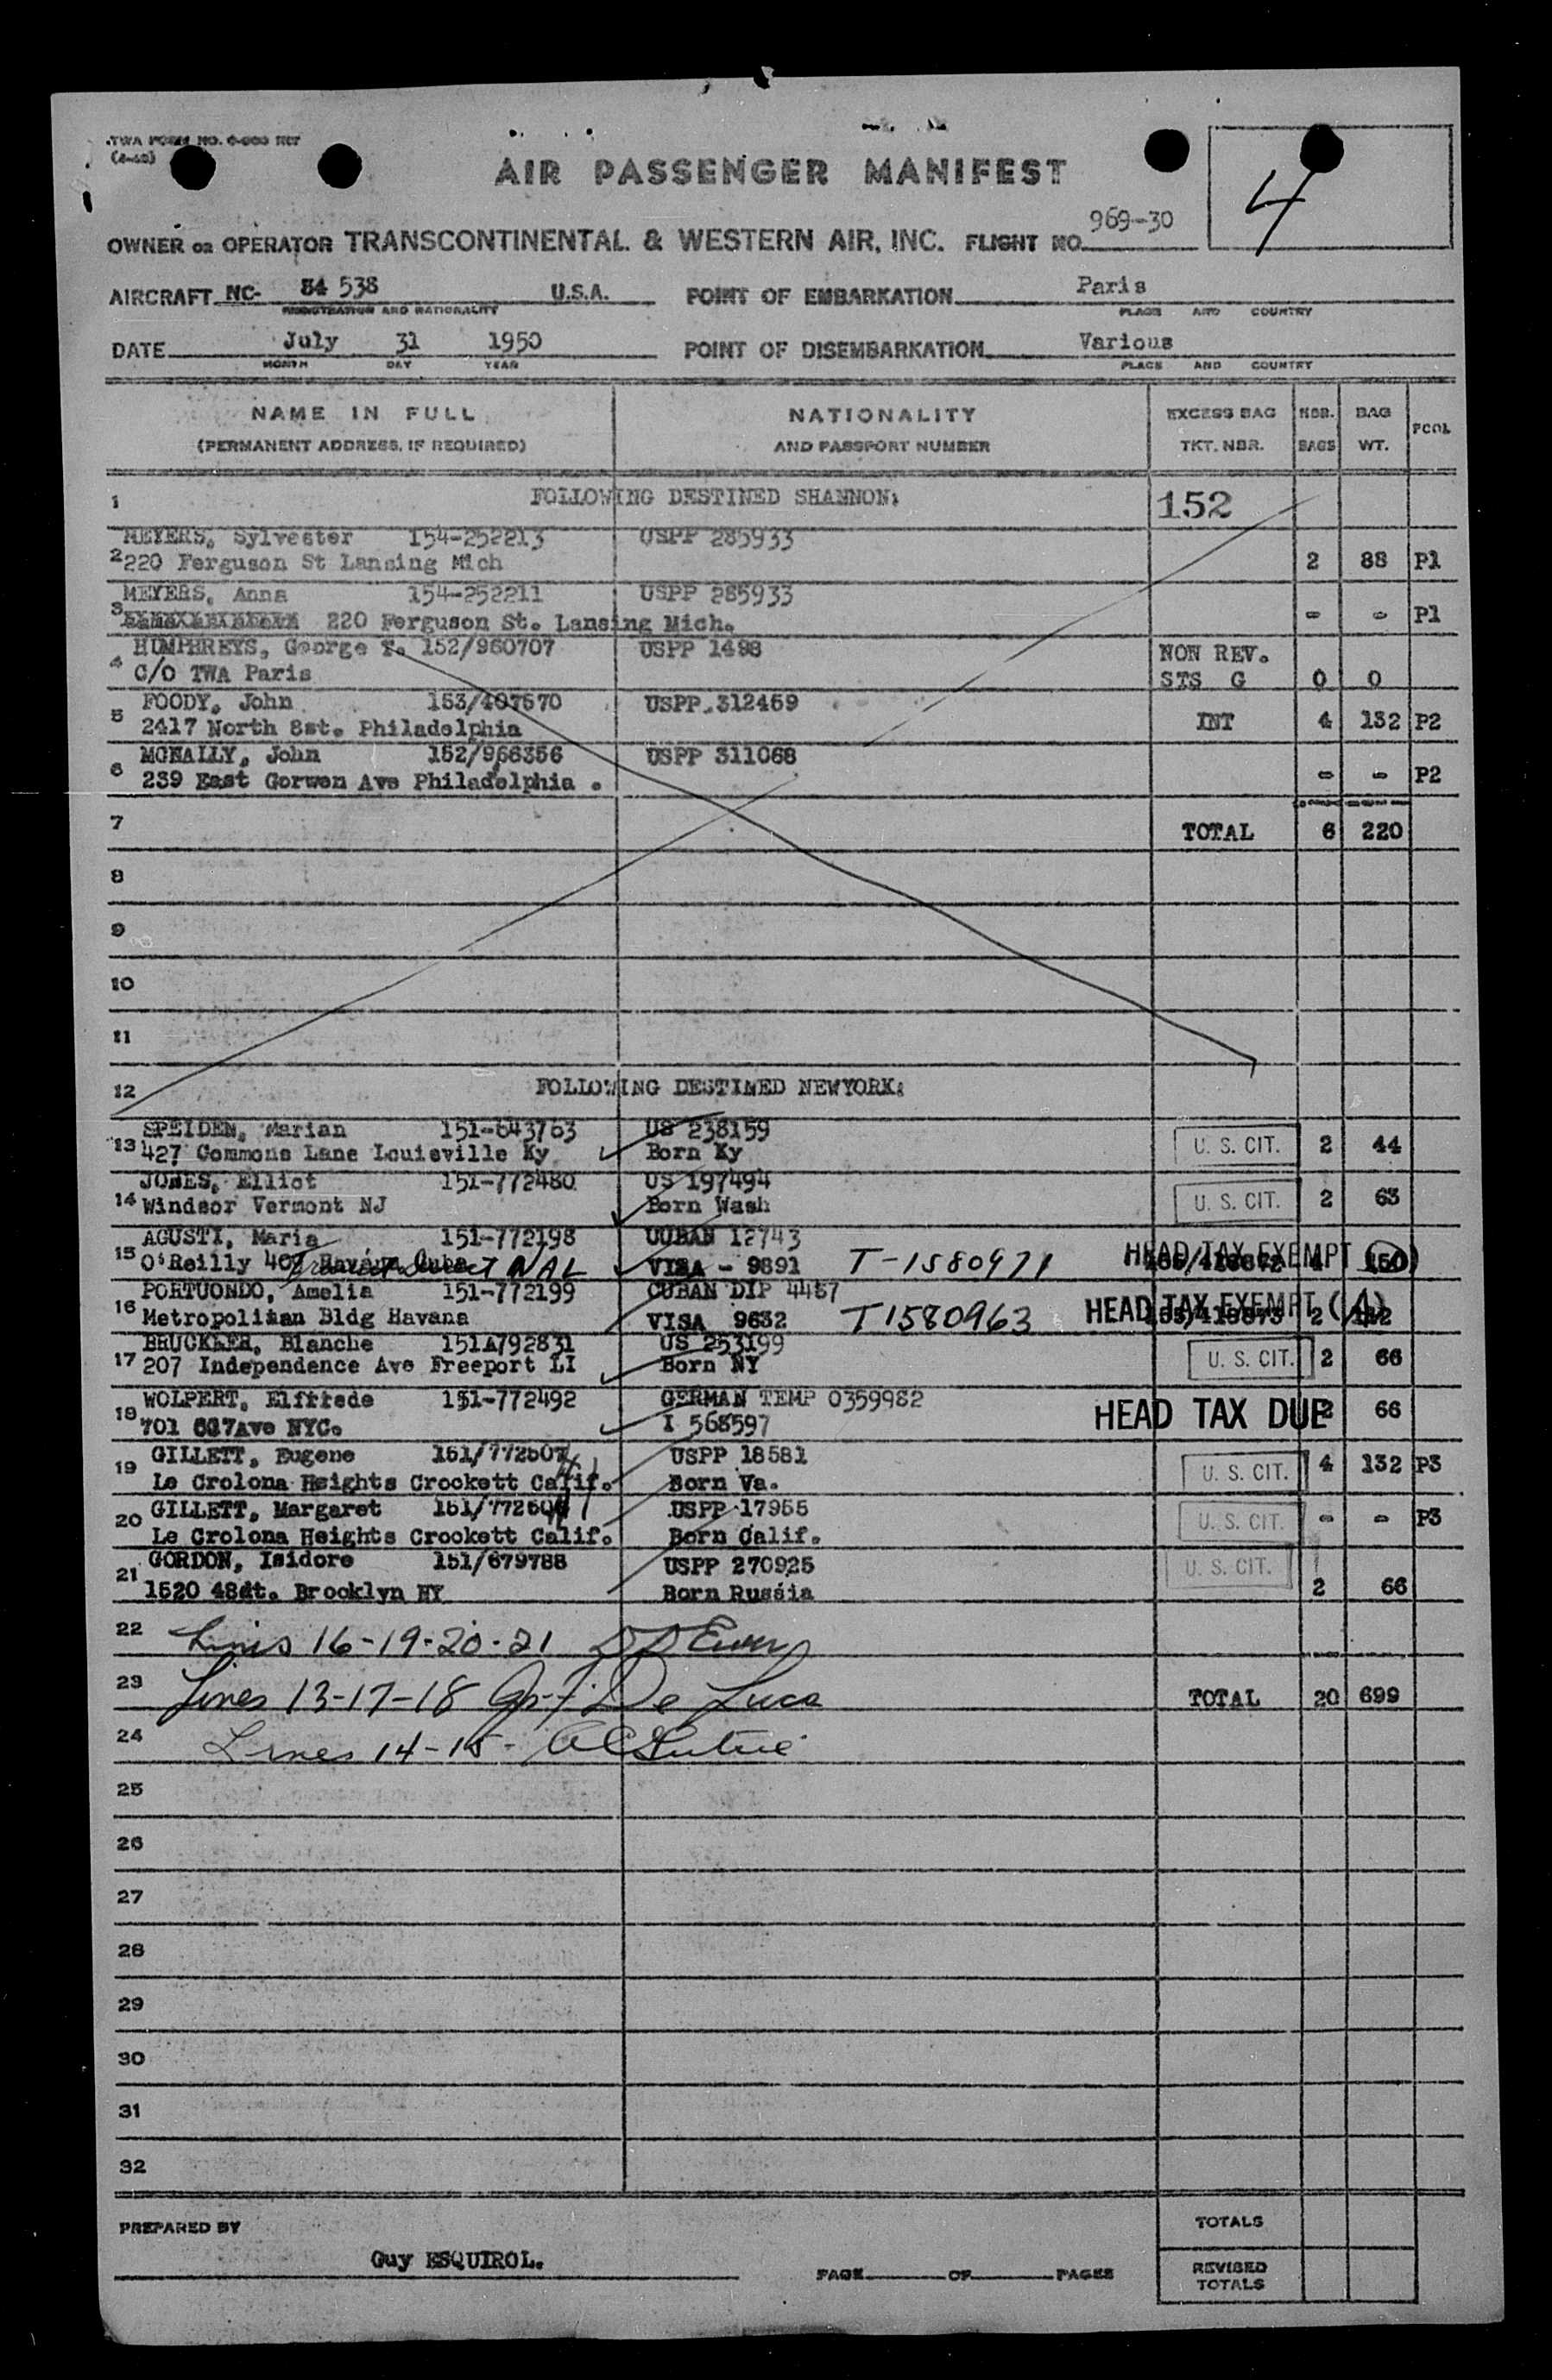 TWA FORM NO.
AIR PASSENGER MANIFEST
4
OWNER OR OPERATOR TRANSCONTINENTAL & WESTERN AIR, INC. FLIGHT NO. 969-30
AIRCRAFT NC- 84 538 U.S.A. POINT OF EMBARKATION Paris
REGISTRATION AND NATIONALITY PLACE AND COUNTRY
DATE July 31 1950 POINT OF DISEMBARKATION Various
MONTH DAY YEAR PLACE AND COUNTRY
NAME IN FULL NATIONALITY EXCESS BAG NBR. BAG PCOL
(PERMANENT ADDRESS, IF REQUIRED) AND PASSPORT NUMBER TKT. NBR. BAGS WT.
1 FOLLOWING DESTINED SHANNON: 152
MEYERS, Sylvester 154-252213 USPP 285933
2 220 Ferguson St Lansing Mich 2 88 P1
MEYERS, Anna 154-252211 USPP 285933
3 220 Ferguson St. Lansing Mich. - - P1
HUMPHREYS, George T. 152/960707 USPP 1498 NON REV.
4 C/O TWA Paris STS G 0 0
FOODY, John 153/407570 USPP 312459
5 2417 North 8st. Philadelphia INT 4 132 P2
MCNALLY, John 152/966356 USPP 311068
6 239 East Gorwen Ave Philadelphia . - - P2
7 TOTAL 6 220
8
9
10
11
12 FOLLOWING DESTINED NEWYORK:
SPEIDEN, Marian 151-643763 US 238159
13 427 Commons Lane Louisville Ky Born Ky U. S. CIT. 2 44
JONES, Elliot 151-772480 US 197494
14 Windsor Vermont NJ Born Wash U. S. CIT. 2 63
AGUSTI, Maria 151-772198 CUBAN 12743
15 O'Reilly 407 Havana Cuba NAL VISA - 9891 T-1580971 HEAD TAX EXEMPT
PORTUONDO, Amelia 151-772199 CUBAN DIP 4457
16 Metropolitan Bldg Havana VISA 9632 T1580963 HEAD TAX EXEMPT 2
BRUCKLER, Blanche 151A792831 US 253199
17 207 Independence Ave Freeport LI Born NY U. S. CIT. 2 66
WOLPERT, Elfriede 151-772492 GERMAN TEMP 0359982
18 701 7Ave NYC. I 568597 HEAD TAX DUE 2 66
19 GILLETT, Eugene 151/772507 USPP 18581
Le Crolona Heights Crockett Calif. Born Va. U. S. CIT. 4 132 P3
20 GILLETT, Margaret USPP 17955
Le Crolona Heights Crockett Calif. Born Calif. U. S. CIT. - - P3
21 GORDON, Isidore 151/679788 USPP 270925 U. S. CIT.
1520 48st. Brooklyn NY Born Russia 2 66
22 Lines 16-19-20-21
23 Lines 13-17-18 De Luca TOTAL 20 699
24 Lines 14-15-
25
26
27
28
29
30
31
32
PREPARED BY TOTALS
Guy ESQUIROL. PAGE OF PAGES REVISED
TOTALS